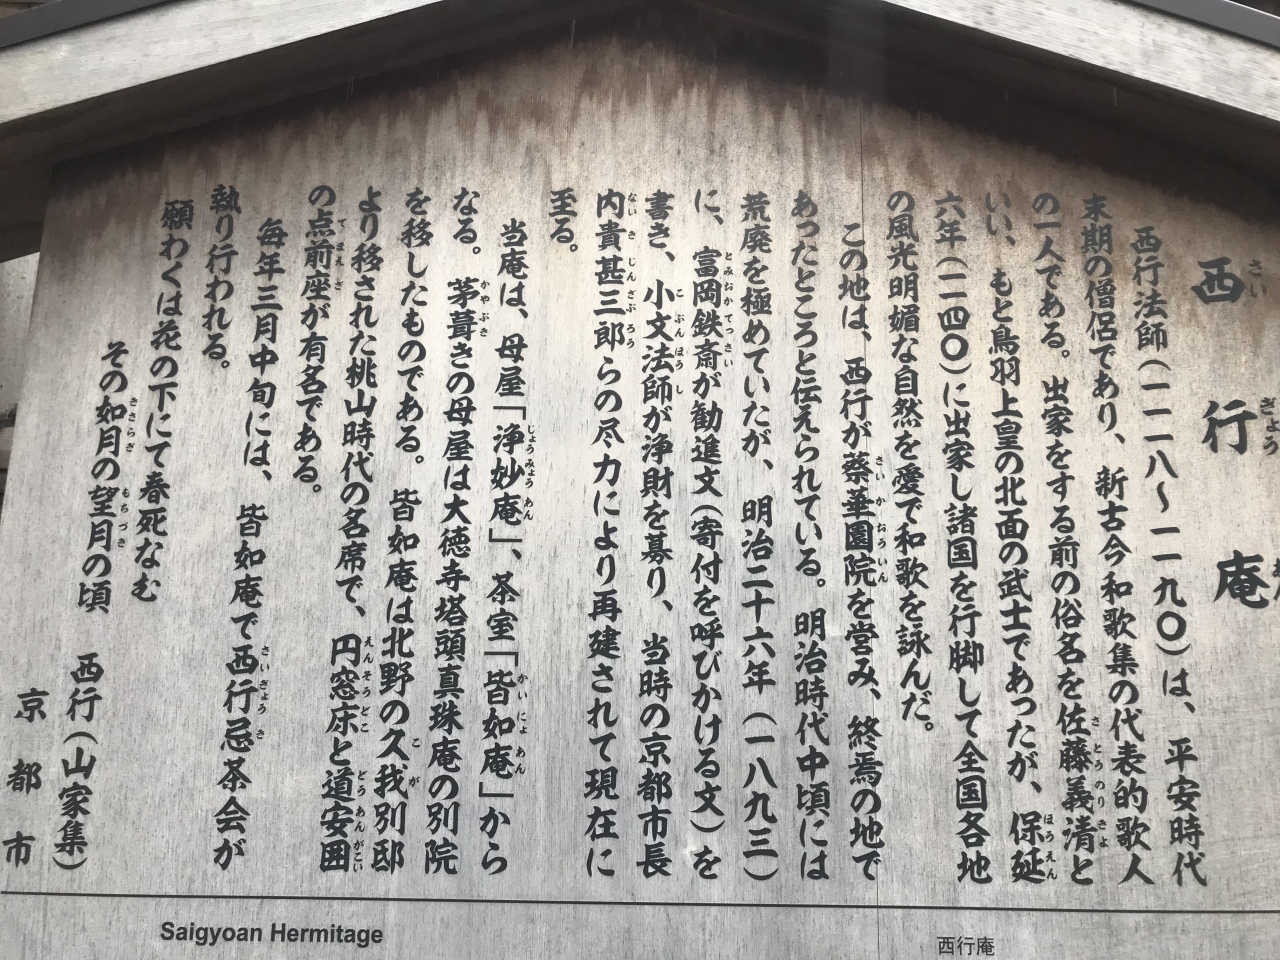 西行庵
西行法師（一一一八～一一九〇）は、平安時代
末期の僧侶であり、新古今和歌集の代表的歌人
の一人である。出家をする前の俗名を佐藤義清と
いい、もと鳥羽上皇の北面の武士であったが、保延
六年（一一四〇）に出家し諸国を行脚して全国各地
の風光明媚な自然を愛で和歌を詠んだ。
この地は、西行が蔡華園院を営み、終焉の地で
あったところと伝えられている。明治時代中頃には
荒廃を極めていたが、明治二十六年（一八九三）
に、富岡鉄斎が勧進文（寄付を呼びかける文）を
書き、小文法師が浄財を募り、当時の京都市長
内貴甚三郎らの尽力により再建されて現在に
至る。
当庵は、母屋「浄妙庵」、茶室「皆如庵」から
なる。茅葺きの母屋は大徳寺塔頭真珠庵の別院
を移したものである。皆如庵は北野の久我別邸
より移された桃山時代の名席で、円窓床と道安囲
の点前座が有名である。
毎年三月中旬には、皆如庵で西行忌茶会が
執り行われる。
願わくは花の下にて春死なむ
その如月の望月の頃　西行（山家集）
京都市
Saigyoan Hermitage
西行庵